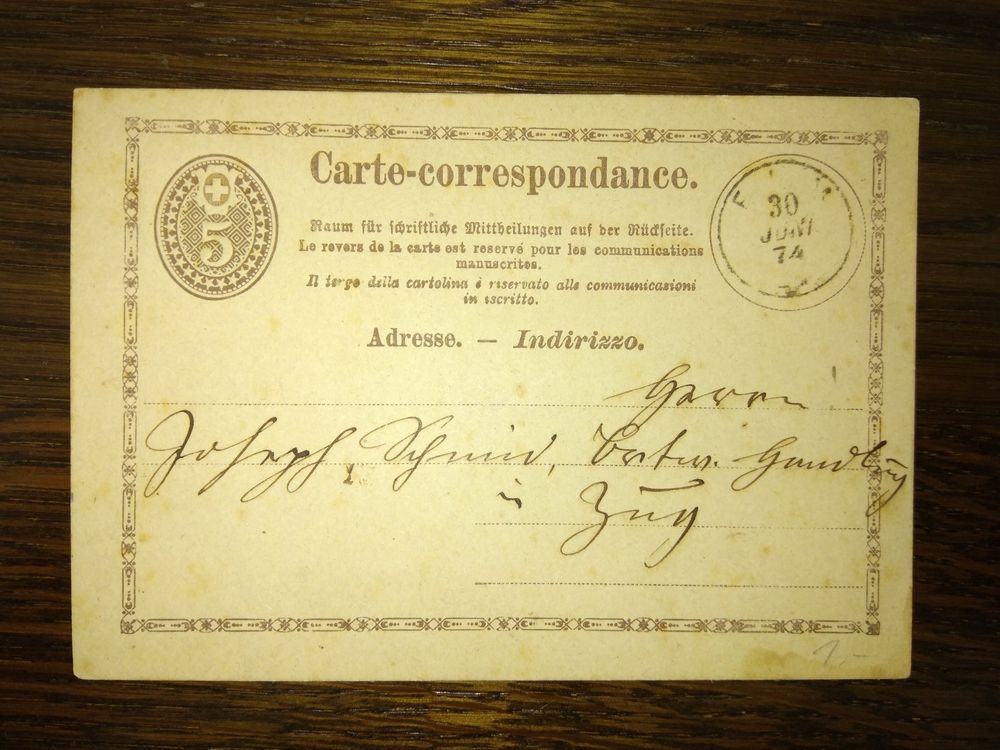 Carte-correspondance.
5
Raum für schriftliche Mittheilungen auf der Rückseite.
Le revers de la carte est reservé pour les communications
manuscrites.
Il tergo della cartolina è riservato alle communicazioni
in iscritto.
30
JUNI
74
Adresse. — Indirizzo.
Herrn
Joseph Schmid, Handlung
in Zug
1.–